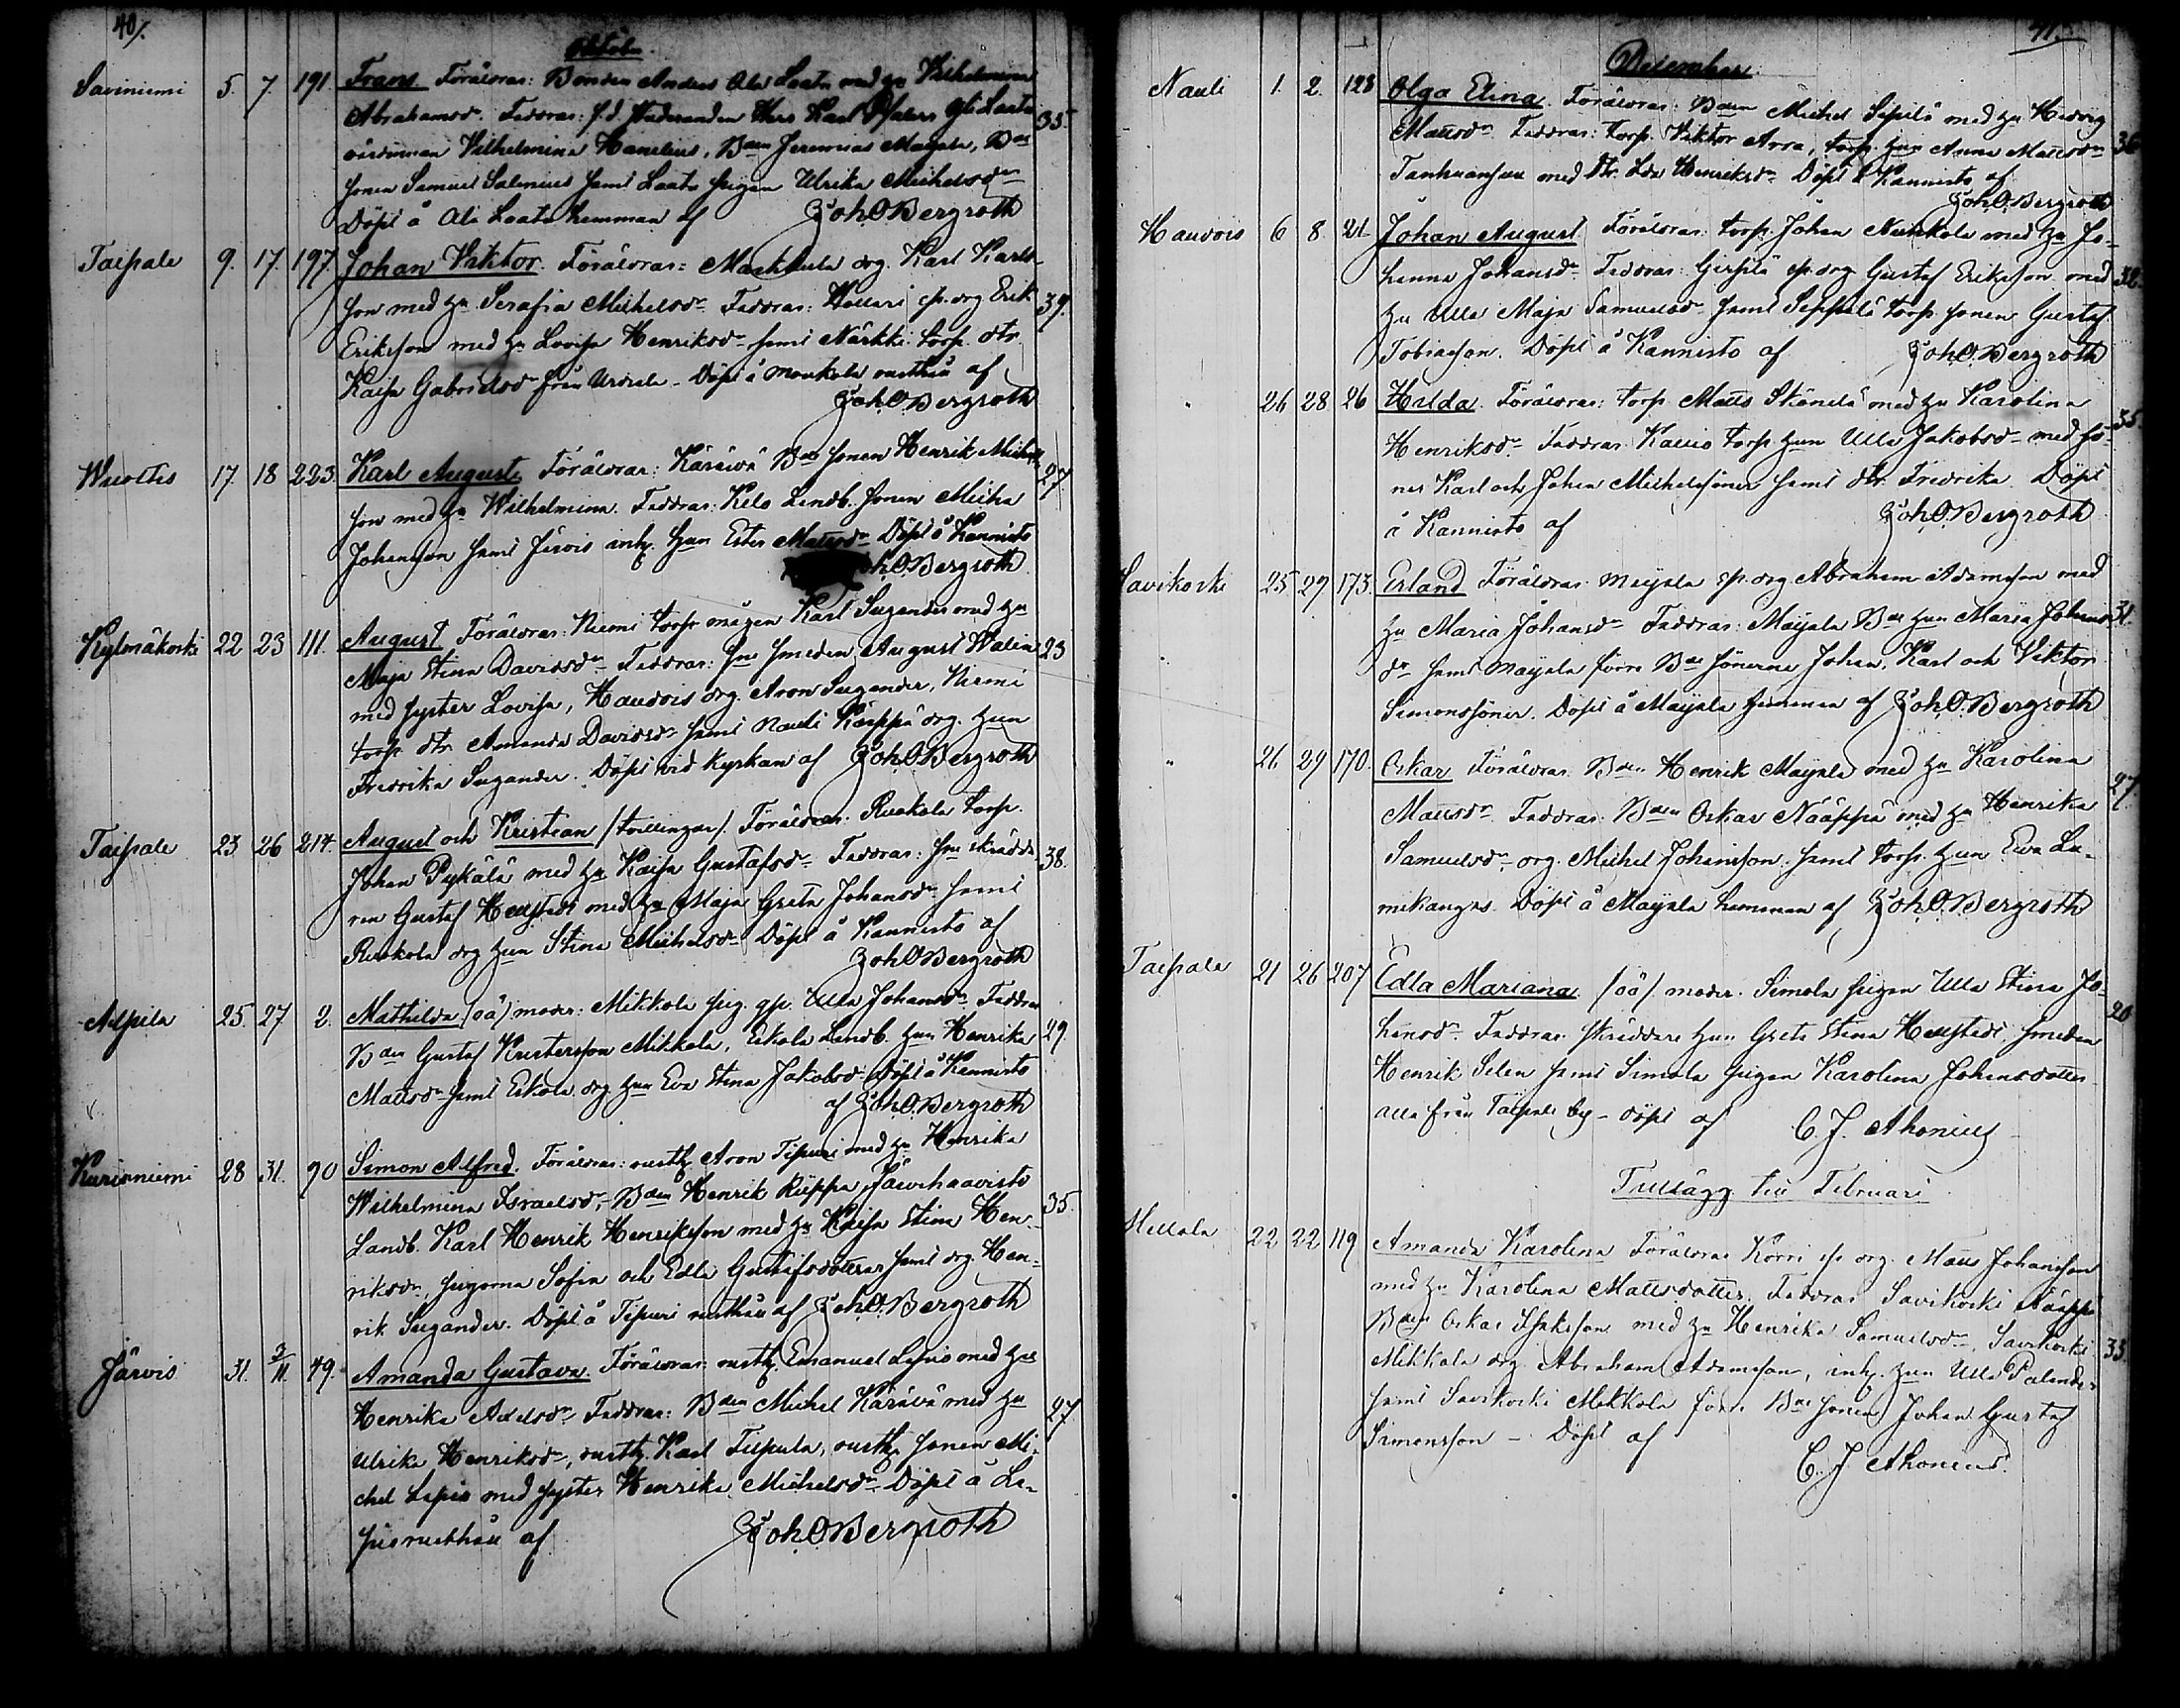 40/.
Oktober.
Saviniemi 5. 7. 191. Frans. Föräldrar: Bonden Anders Ala Laata med hu Wilhelmina 35.
Abrahamsdr. Faddrar: f.d. Studeranden Herr Karl
Wilhelmina Hanelius, Bden Jeremias Mayala, Bde
sonen Samuel Salenius samt Laata pigan Ulrika Michelsdr
Döpt å Ala Laata hemman af Joh.O.Bergroth
Taipale 9. 17. 197. Johan Viktor. Föräldrar: drg. Karl Karls- 39.
son med hu Serafia Michelsdr. Faddrar: drg Erik
Eriksson med hu Lovisa Henriksdr samt Närkki torp. dtr.
Kaisa Gabrielsdr från Urdiala - Döpt å rusthåll af
Joh.O.Bergroth
Wuoltis 17. 18 223. Karl August. Föräldrar: Käräivä Bde sonen Henrik Michels 27.
son med hu Wilhelmina. Faddrar: Kilo Landb. sonen Micha
Johansson samt Järvis inh. hun Ester Mattsdr. Döpt å Kannisto
Joh.O.Bergroth
Kylmäkoski 22 23 111. August. Föräldrar: Niemi torp. mågen Karl Sugander med hu 23
Maja Stina Davidsdr. Faddrar: smeden August Walin
med syster Lovisa, Haudois drg. Aron Sugander, Niemi
torp. dtr. Amanda Davidsdr samt Nauli Käppä drg. hun
Fredrika Sugander. Döpt vid kyrkan af Joh.O.Bergroth
Taipale 23 26 214. August och Kristian /tvillingar/. Föräldrar: Ruokola torp. 38.
Johan Pykälä med hu Kaisa Gustafsdr. Faddrar: skrädda
ren Gustaf Hellstedt med hu Maja Greta Johansdr samt
Ruokola drg hun Stina Michelsdr. Döpt å Kannisto af
Joh.O.Bergroth
Arpila 25. 27. 2. Mathilda /oä/ moder: Mikkola pig. Ulla Johansdr. Faddrar 29.
Bden Gustaf Kristersson Mikkola, Eskola Landb. hun Henrika
Mattsdr samt Eskola drg hun Eva Stina Jakobsdr. Döpt å Kannisto
af Joh.O.Bergroth
Kurisniemi 28 31. 90 Simon Alfred. Föräldrar: rusth. Aron Tipuri med hu Henrika 35.
Wilhelmina Israelsdr, Bden Henrik Riippa,
Landb. Karl Henrik Henriksson med hu Kaisa Stina Hen-
riksdr, pigorna Sofia och Edla Gustafsdöttrar samt drg. Hen-
rik Sugander. Döpt å Tipuri rusthåll af Joh.O.Bergroth
Järvis 31. 3/11. 49. Amanda Gustava. Föräldrar: rusth. Emanuel Lepis med hu 27.
Henrika Axelsdr. Faddrar: Bden Michel Käräivä med hu
Ulrika Henriksdr, rusth. Karl rusth. sonen Mi-
chel Lepis med syster Henrika Michelsdr. Döpt å Le-
pis rusthåll af Joh.O.Bergroth
41.
December.
Nauli 1. 2. 128 Olga Elina. Föräldrar: Bden Michel Sipilä med hu Hedvig 36
Mattsdr. Faddrar: torp. Viktor Arra, torp. hun Anna Mattsdr
Tanhuanpää med dtr. Henriksdr. Döpt å Kannisto af
Joh.O.Bergroth
Haudois 6 8. 21. Johan August. Föräldrar: torp. Johan med hu Jo- 32.
hanna Johansdr. Faddrar: drg Gustaf Eriksson med
hu Ulla Maja Samuelsdr samt Seppälä torp. sonen Gustaf
Tobiasson. Döpt å Kannisto af Joh.O.Bergroth
" 26 28 26 Hilda. Föräldrar: torp. Matts Skänilä med hu Karolina 35.
Henriksdr. Faddrar: Kallio torp. hun Ulla Jakobsdr med sö-
ner Karl och Johan Michelssöner samt dtr. Fredrika Döpt
å Kannisto af Joh.O.Bergroth
Savikoski 25 29 173. Erland. Föräldrar: Mayala drg Abraham Adamsson med 31.
hu Maria Johansdr. Faddrar: Mayala Bde hun Maria Johans
dr samt Mayala förre Bde sönerne Johan, Karl och Viktor
Simonssöner. Döpt å Mayala hemman af Joh.O.Bergroth
" 26 29 170. Oskar. Föräldrar: Bden Henrik Mayala med hu Karolina 27.
Mattsdr. Faddrar: Bden Oskar Nääppä med hu Henrika
Samuelsdr, drg. Michel Johansson samt torp. hun Eva La-
mikangas. Döpt å Mayala hemman af Joh.O.Bergroth
Taipale 21 26 207 Edla Mariana. /oä/. moder: Simola pigan Ulla Stina Jo- 20
hansdr. Faddrar: skräddare hun Greta Stina Hellstedt, smeden
Henrik Selin samt Simola pigan Karolina Johansdotter
alla från Taipale by - döpt af C. J. Ahonius
Tillägg till Februari
Mellola 22 22 119 Amanda Karolina Föräldrar Korri drg. Matts Johansson 33
med hu Karolina Mattsdotter. Faddrar Savikoski Nääppä
Bden Oskar Isaksson med hu Henrika Samuelsdr, Savikoski
Mikkola drg. Abraham Adamsson, inh. hun Ulla Palander
samt Savikoski Mikkola förre Bde sonen Johan Gustaf
Simonsson - Döpt af
C. J. Ahonius.